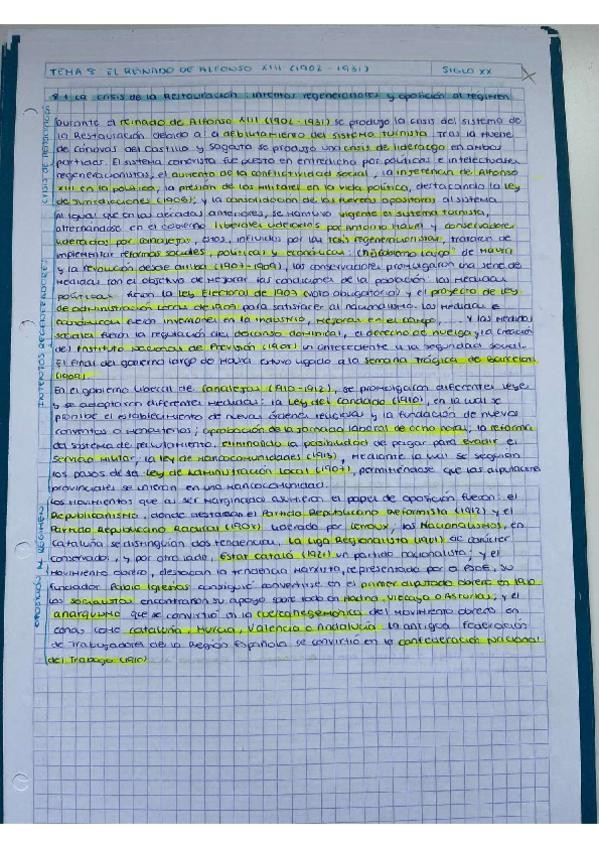 TEMA 8 EL REINADO DE ALFONSO XIII (1902 - 1931) SIGLO XX
8.1 La crisis de la Restauración: intentos regeneracionistas y oposición al régimen
CRISIS DE RESTAURACIÓN
Durante el reinado de Alfonso XIII (1902-1931) se produjo la crisis del sistema de
la Restauración debido al debilitamiento del sistema turnista tras la muerte
de Cánovas del Castillo y Sagasta se produjo una crisis de liderazgo en ambos
partidos. El sistema canovista fue puesto en entredicho por políticos e intelectuales
regeneracionistas, el aumento de la conflictividad social, la injerencia de Alfonso
XIII en la política, la presión de los militares en la vida política, destacando la Ley
de Jurisdicciones (1906); y la consolidación de las fuerzas opositoras al sistema
INTENTOS REGENERADORES
Al igual que en las décadas anteriores, se mantuvo vigente el sistema turnista,
alternándose en el gobierno liberales liderados por Antonio Maura y conservadores
liderados por Canalejas, estos, influidos por las tesis regeneracionistas, trataron de
implementar reformas sociales, políticas y económicas. En "Gobierno Largo" de Maura
y la revolución desde arriba (1907-1909), los conservadores promulgaron una serie de
medidas con el objetivo de mejorar las condiciones de la población. Las medidas
políticas fueron la Ley Electoral de 1907 (voto obligatorio) y el proyecto de Ley
de administración Local de 1907 para satisfacer al nacionalismo. Las medidas
económicas fueron inversiones en la industria, mejoras en el campo, y las medidas
sociales fueron la regulación del descanso dominical, el derecho de huelga y la creación
del Instituto Nacional de Previsión (1908) un antecedente a la seguridad social.
El final del gobierno largo de Maura estuvo ligado a la Semana Trágica de Barcelona
(1909)
En el gobierno liberal de Canalejas (1910-1912), se promulgaron diferentes leyes
y se adoptaron diferentes medidas: la Ley del Candado (1910), en la cual se
prohíbe el establecimiento de nuevas órdenes religiosas y la fundación de nuevos
conventos o monasterios; aprobación de la jornada laboral de ocho horas; la reforma
del sistema de reclutamiento, eliminando la posibilidad de pagar para evadir el
servicio militar; la ley de Mancomunidades (1913), mediante la cual se seguían
los pasos de la Ley de Administración Local (1907), permitiéndose que las diputaciones
provinciales se unieran en una mancomunidad.
OPOSICIÓN AL RÉGIMEN
Los movimientos que al ser marginados asumieron el papel de oposición fueron: el
Republicanismo, donde destacaban el Partido Republicano Reformista (1912) y el
Partido Republicano Radical (1908) liderado por Lerroux; los Nacionalismos, en
Cataluña se distinguían dos tendencias, la Liga Regionalista (1901) de carácter
conservador, y por otro lado, Estat Català (1922) un partido nacionalista; y el
movimiento obrero, destacan la tendencia marxista, representado por el PSOE, su
fundador Pablo Iglesias consiguió convertirse en el primer diputado obrero en 1910
los socialistas encontraron su apoyo sobre todo en Madrid, Vizcaya o Asturias; y el
anarquismo que se convirtió en la fuerza hegemónica del movimiento obrero en
zonas como Cataluña, Murcia, Valencia o Andalucía. La antigua Federación
de Trabajadores de la Región Española se convirtió en la Confederación Nacional
del Trabajo (1910)